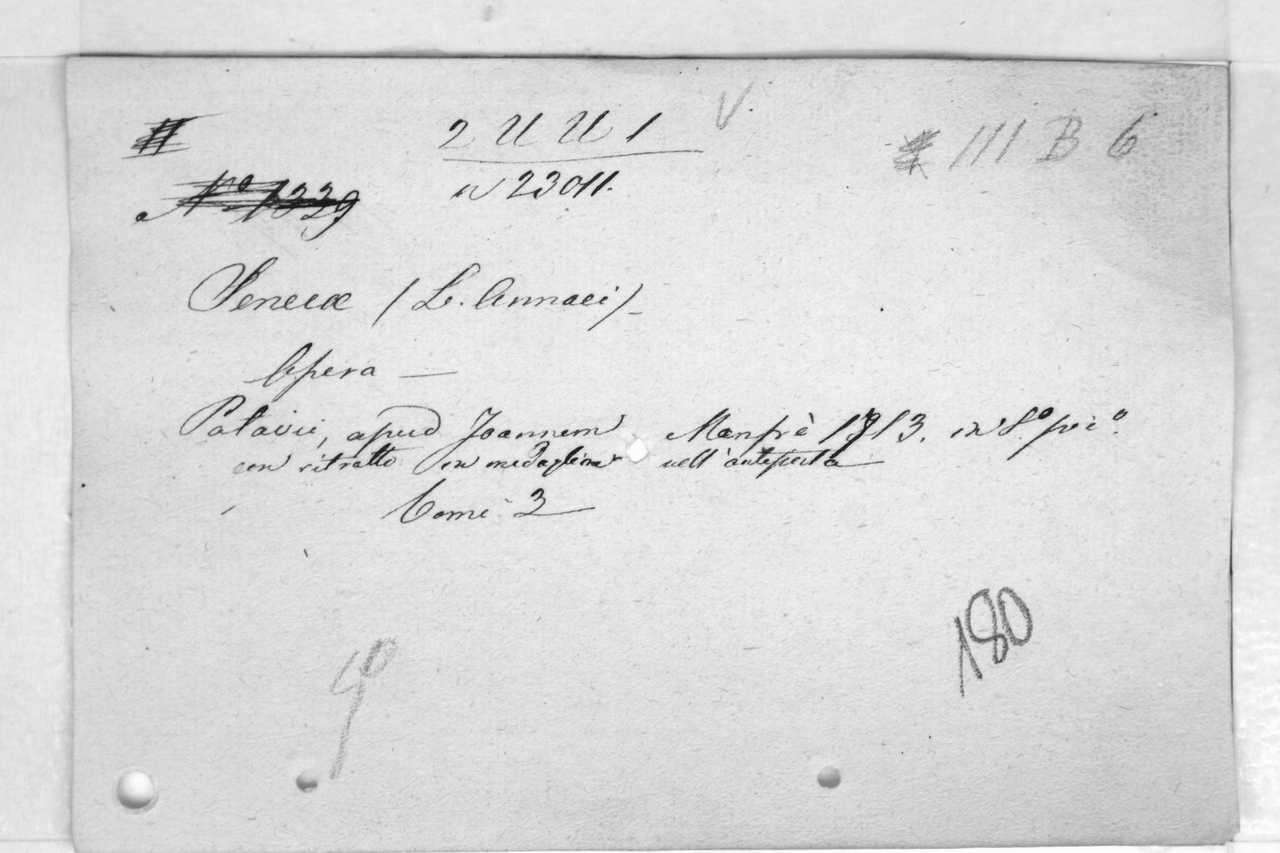 2 U U 1 V
III B 6
N.º 1339
n 23011.
Senecæ (L. Annaei)
Opera —
Patavii, apud Joannem Manfrè 1713. in 8.º pic.º
con ritratto in medaglione nell'antiporta
Tomi 2
180